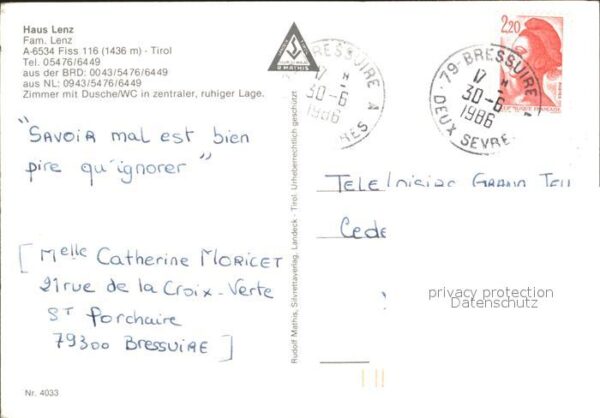 Haus Lenz
Fam. Lenz
A-6534 Fiss 116 (1436 m) - Tirol
Tel. 05476/6449
aus der BRD: 0043/5476/6449
aus NL: 0943/5476/6449
Zimmer mit Dusche/WC in zentraler, ruhiger Lage.
"SAVOIR mal est bien
pire qu'ignorer"
[Melle Catherine MORICET
21 rue de la Croix-Verte
St Porchaire
79300 BRESSUIRE]
Nr. 4033
Rudolf Mathis, Silvrettaverlag, Landeck - Tirol. Urheberrechtlich geschützt
R. MATHIS
BRESSUIRE A
17 H
30-6
1986
RES
79-BRESSUIRE
17 H
30-6
1986
DEUX SEVRE
2,20
TELE Loisirs GRAND
Cede
privacy protection
Datenschutz